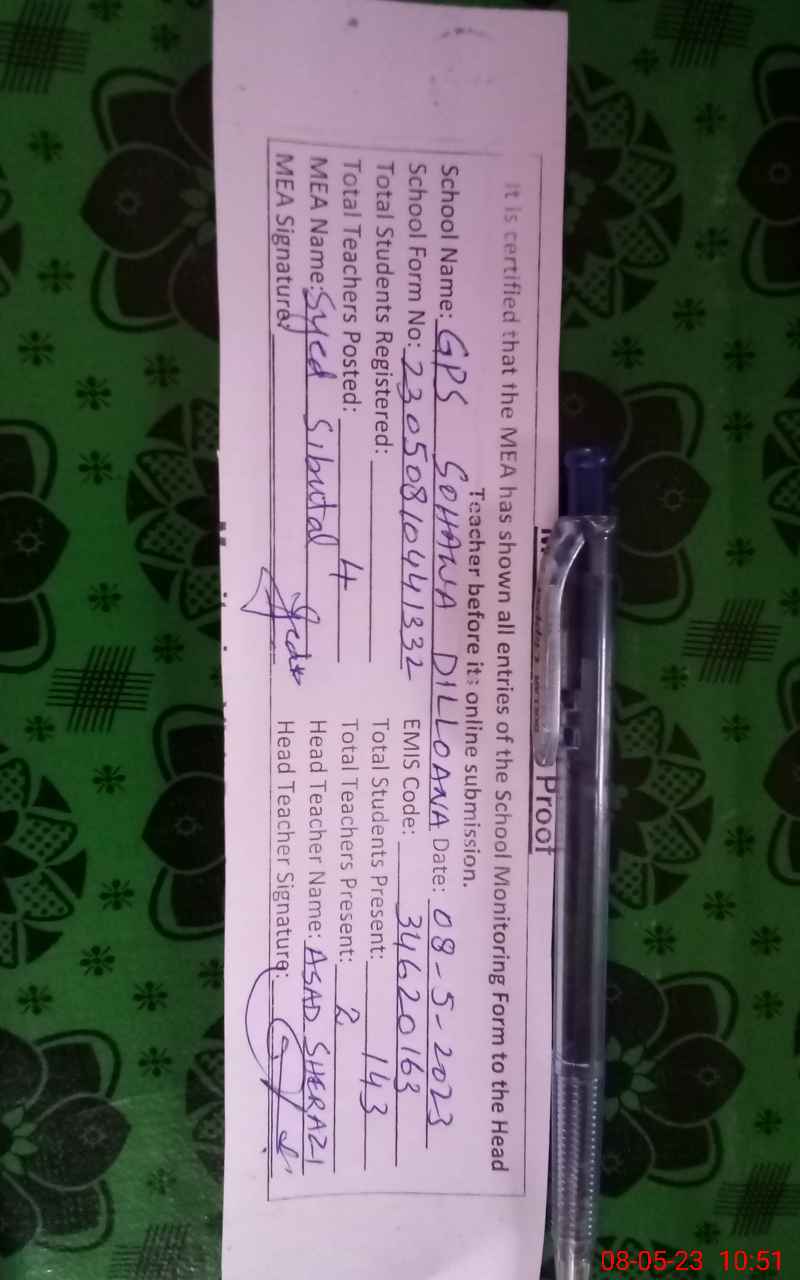 Proof
It is certified that the MEA has shown all entries of the School Monitoring Form to the Head
Teacher before its online submission.
School Name: GPS SOHAWA DILLOANA Date: 08-5-2023
School Form No: 23050810441332 EMIS Code: 34620163
Total Students Registered: Total Students Present: 143
Total Teachers Posted: 4 Total Teachers Present: 2
MEA Name: Syed Sibutal Head Teacher Name: ASAD SHERAZI
MEA Signature: Head Teacher Signature:
08-05-23 10:51